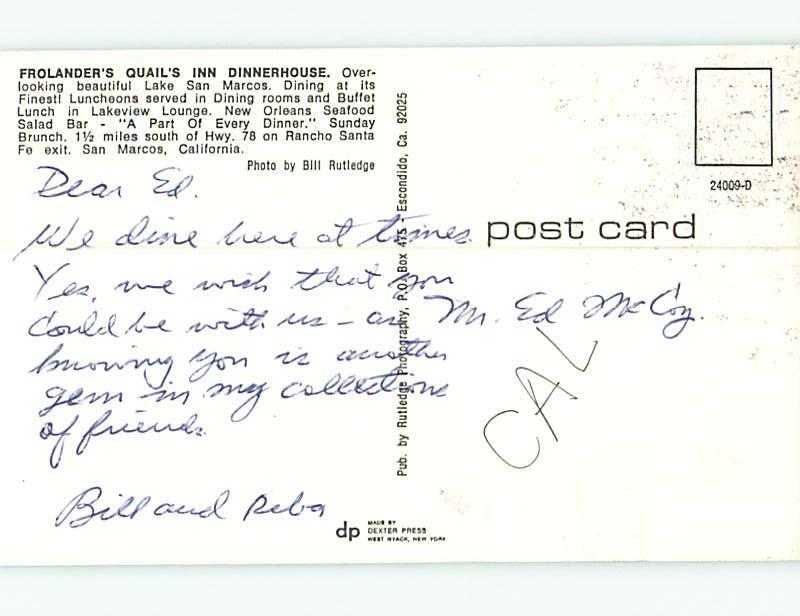 FROLANDER'S QUAIL'S INN DINNERHOUSE. Over-
looking beautiful Lake San Marcos. Dining at its
Finest! Luncheons served in Dining rooms and Buffet
Lunch in Lakeview Lounge. New Orleans Seafood
Salad Bar - "A Part Of Every Dinner." Sunday
Brunch. 1½ miles south of Hwy. 78 on Rancho Santa
Fe exit. San Marcos, California.
Photo by Bill Rutledge
Dear Ed.
We dine here at times.
Yes, we wish that you
could be with us - as
knowing you is another
gem in my collections
of friends.
Bill and Reba
Pub. by Rutledge Photography, P.O. Box 475 Escondido, Ca. 92025
dp
MADE BY
DEXTER PRESS
WEST NYACK, NEW YORK
24009-D
post card
Mr. Ed McCoy.
CAL